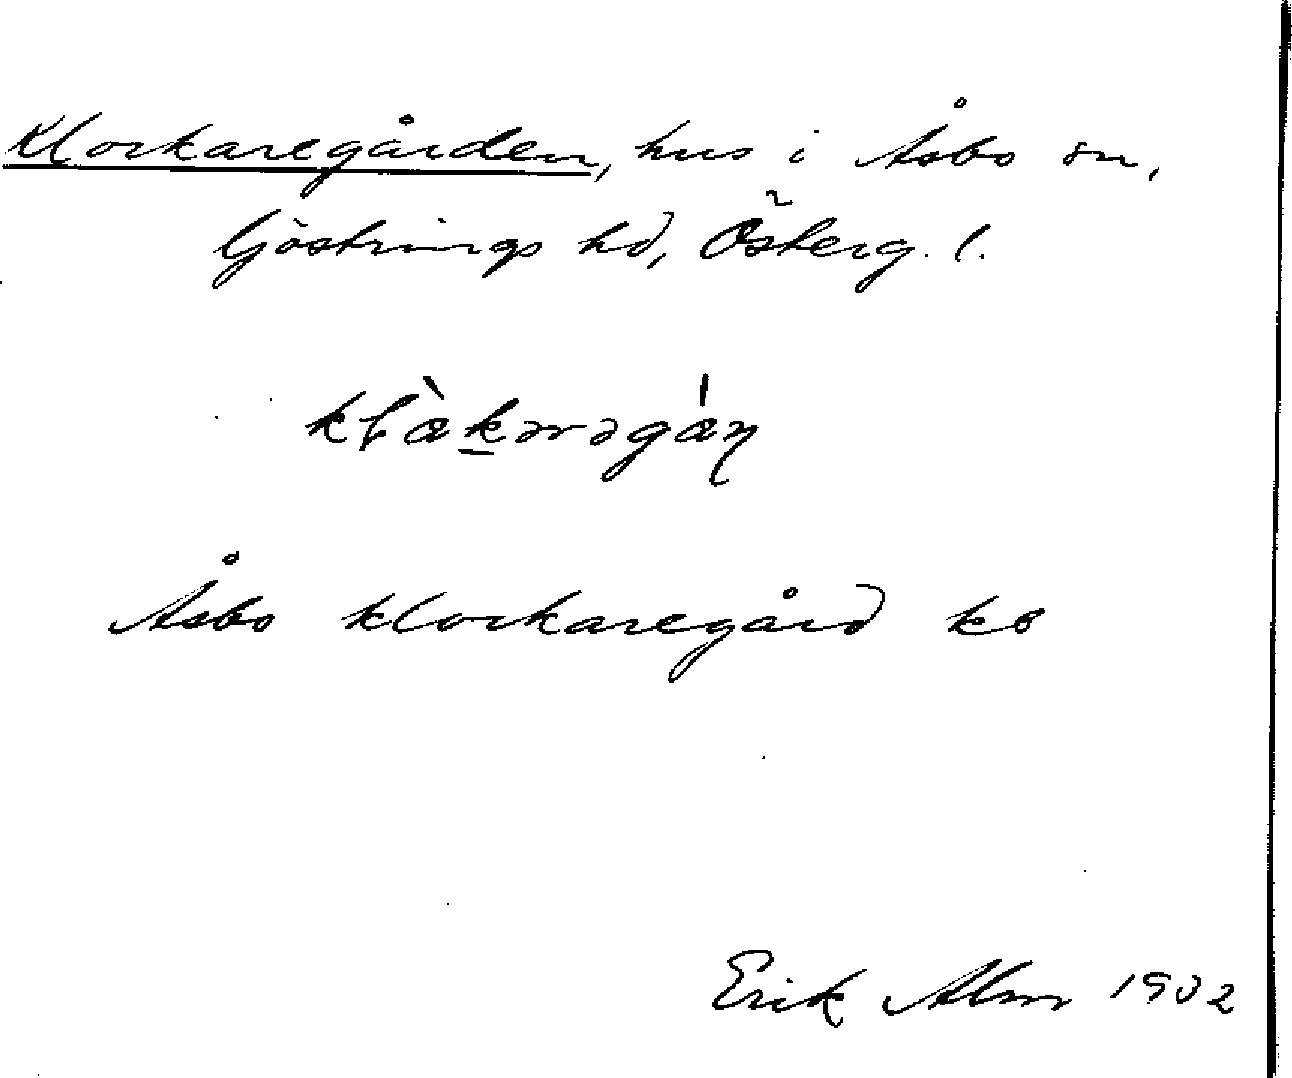 Klockaregården, hus i Åsbo sn,
Göstrings hd, Österg. l.
Åsbo klockaregård kb
Erik Alm 1902